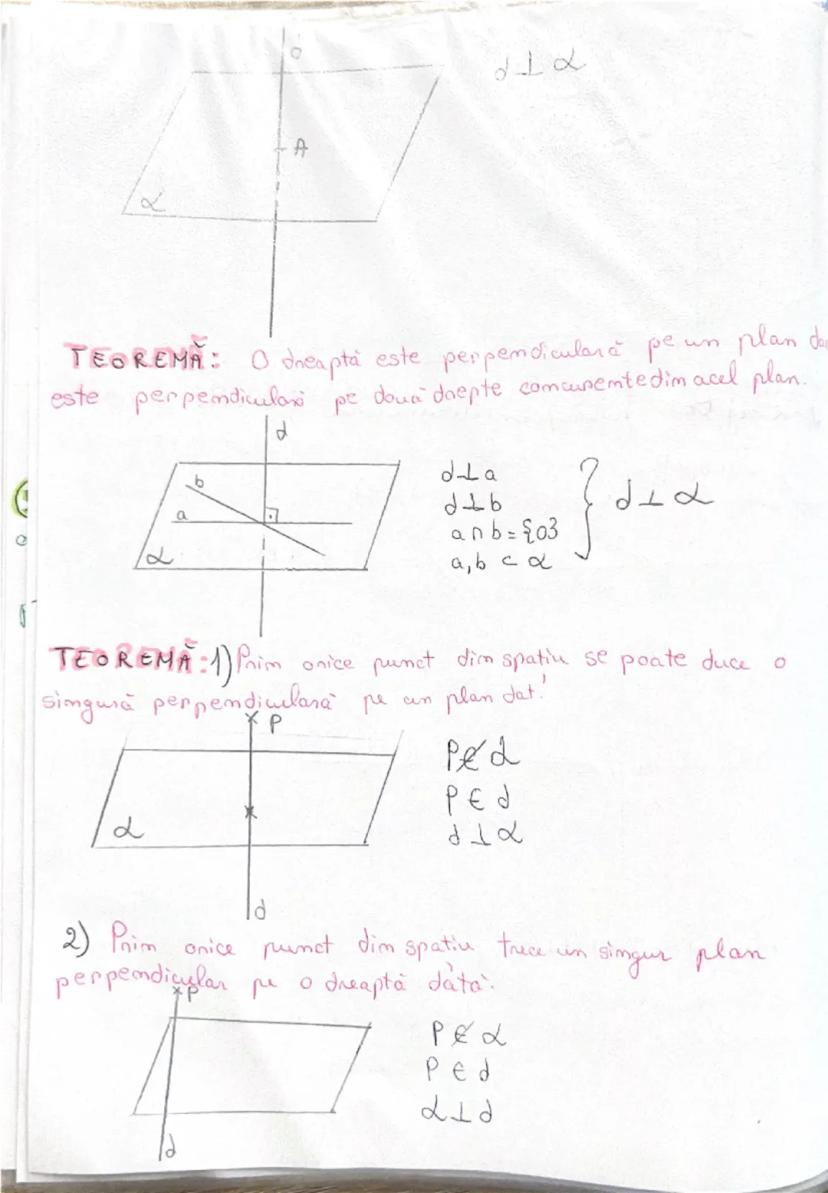 d ⊥ α
A
α
TEOREMĂ: O dreaptă este perpendiculară pe un plan da
este perpendiculară pe două drepte concurente din acel plan.
d
b
a
α
d⊥a
d⊥b
a ∩ b = {O}
a, b ⊂ α
} d ⊥ α
TEOREMĂ: 1) Prin orice punct din spațiu se poate duce o
singură perpendiculară pe un plan dat.
P
α
d
P ∉ α
P ∈ d
d ⊥ α
2) Prin orice punct din spațiu trece un singur plan
perpendicular pe o dreaptă dată.
P
d
P ∉ α
P ∈ d
α ⊥ d